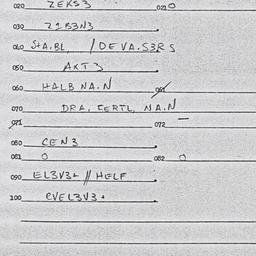 020 ZEKS3 021 0
030 Z1B3N3
040 S+A.BL / DEVA.S3RS
050 AXT3
060 HALBNA.N 061
070 DRA, CERTL, NA.N
071 072 —
080 CEN3
081 0 082 0
090 EL3V3+ // HELF
100 EVEL3V3+